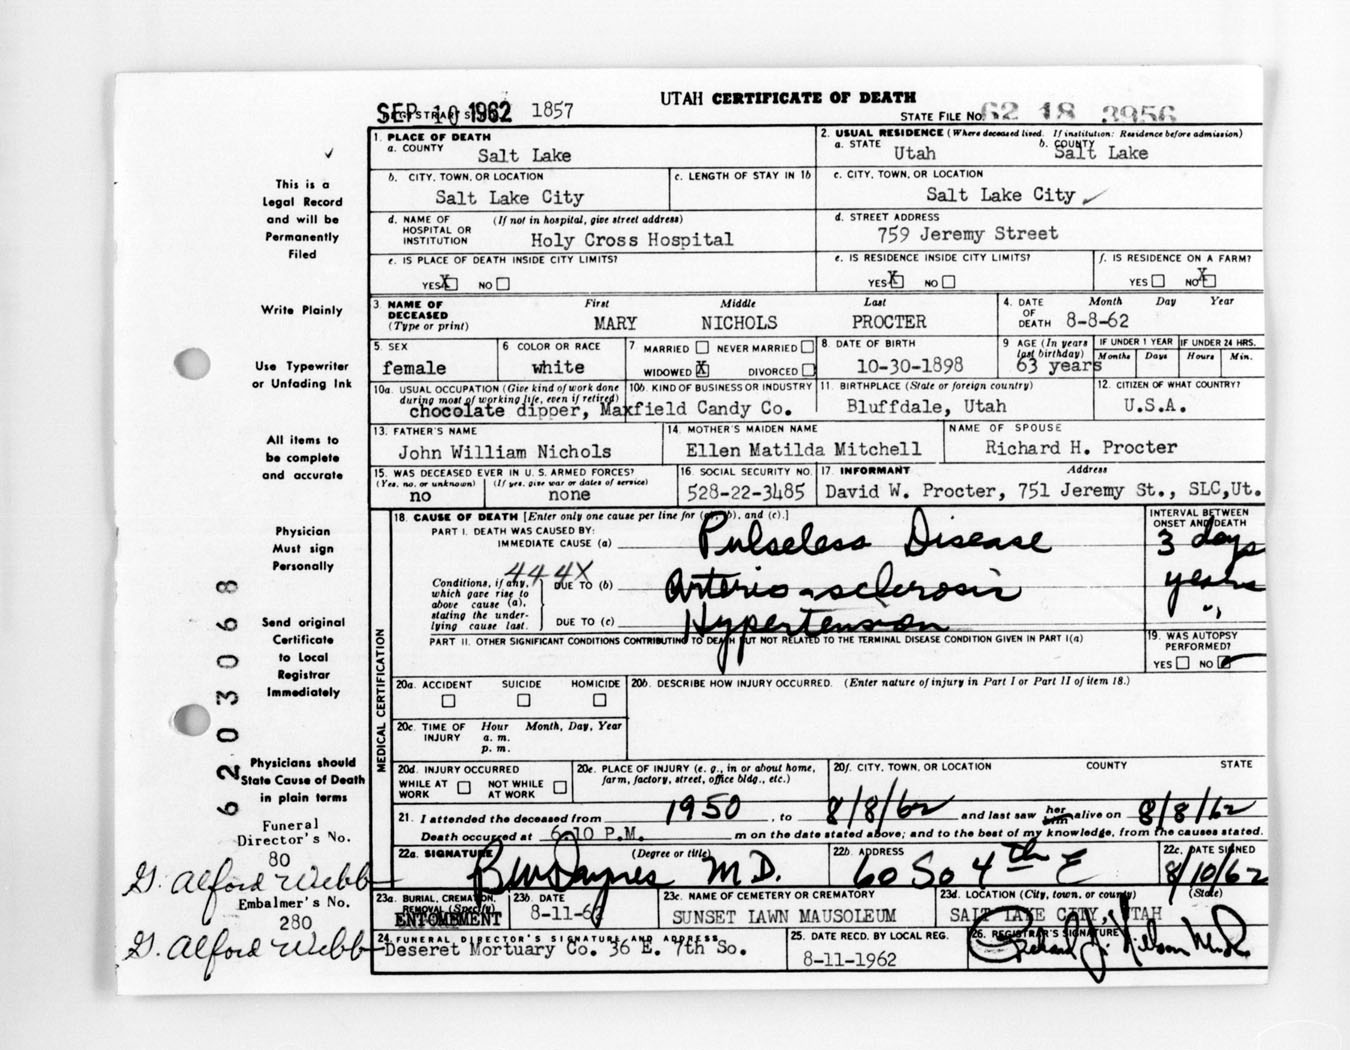 UTAH CERTIFICATE OF DEATH
SEP 10 1962 1857
STATE FILE NO. 62 18 3956
1. PLACE OF DEATH
a. COUNTY Salt Lake
2. USUAL RESIDENCE (Where deceased lived. If institution: Residence before admission)
a. STATE Utah b. COUNTY Salt Lake
b. CITY, TOWN, OR LOCATION Salt Lake City
c. LENGTH OF STAY IN 1b
c. CITY, TOWN, OR LOCATION Salt Lake City
d. NAME OF HOSPITAL OR INSTITUTION (If not in hospital, give street address) Holy Cross Hospital
d. STREET ADDRESS 759 Jeremy Street
e. IS PLACE OF DEATH INSIDE CITY LIMITS? YES X NO
e. IS RESIDENCE INSIDE CITY LIMITS? YES X NO
f. IS RESIDENCE ON A FARM? YES NO X
3. NAME OF DECEASED (Type or print) First Middle Last
MARY NICHOLS PROCTER
4. DATE OF DEATH Month Day Year 8-8-62
5. SEX female
6 COLOR OR RACE white
7 MARRIED NEVER MARRIED WIDOWED X DIVORCED
8 DATE OF BIRTH 10-30-1898
9 AGE (In years last birthday) 63 years
IF UNDER 1 YEAR Months Days
IF UNDER 24 HRS. Hours Min.
10a. USUAL OCCUPATION (Give kind of work done during most of working life, even if retired)
10b. KIND OF BUSINESS OR INDUSTRY
chocolate dipper, Maxfield Candy Co.
11. BIRTHPLACE (State or foreign country) Bluffdale, Utah
12. CITIZEN OF WHAT COUNTRY? U.S.A.
13. FATHER'S NAME John William Nichols
14. MOTHER'S MAIDEN NAME Ellen Matilda Mitchell
NAME OF SPOUSE Richard H. Procter
15. WAS DECEASED EVER IN U. S. ARMED FORCES?
(Yes, no, or unknown) no (If yes, give war or dates of service) none
16. SOCIAL SECURITY NO. 528-22-3485
17. INFORMANT Address
David W. Procter, 751 Jeremy St., SLC,Ut.
MEDICAL CERTIFICATION
18. CAUSE OF DEATH [Enter only one cause per line for (a), (b), and (c).]
INTERVAL BETWEEN ONSET AND DEATH
PART I. DEATH WAS CAUSED BY:
IMMEDIATE CAUSE (a) Pulseless Disease 3 days
444X
Conditions, if any, which gave rise to above cause (a), stating the underlying cause last.
DUE TO (b) Arterio-sclerosis years
DUE TO (c) Hypertension "
PART II. OTHER SIGNIFICANT CONDITIONS CONTRIBUTING TO DEATH BUT NOT RELATED TO THE TERMINAL DISEASE CONDITION GIVEN IN PART I(a)
19. WAS AUTOPSY PERFORMED? YES NO
20a. ACCIDENT SUICIDE HOMICIDE
20b. DESCRIBE HOW INJURY OCCURRED. (Enter nature of injury in Part I or Part II of item 18.)
20c. TIME OF INJURY Hour Month, Day, Year
a. m.
p. m.
20d. INJURY OCCURRED
WHILE AT WORK NOT WHILE AT WORK
20e. PLACE OF INJURY (e. g., in or about home, farm, factory, street, office bldg., etc.)
20f. CITY, TOWN, OR LOCATION COUNTY STATE
21. I attended the deceased from 1950, to 8/8/62 and last saw her him alive on 8/8/62
Death occurred at 6:10 P.M. m on the date stated above; and to the best of my knowledge, from the causes stated.
22a. SIGNATURE (Degree or title) BW Daynes M D.
22b. ADDRESS 60 So 4th E
22c. DATE SIGNED 8/10/62
23a. BURIAL, CREMATION, REMOVAL (Specify) ENTOMBMENT
23b. DATE 8-11-62
23c. NAME OF CEMETERY OR CREMATORY SUNSET LAWN MAUSOLEUM
23d. LOCATION (City, town, or county) (State) SALT LAKE CITY, UTAH
24. FUNERAL DIRECTOR'S SIGNATURE AND ADDRESS
Deseret Mortuary Co. 36 E. 7th So.
25. DATE RECD. BY LOCAL REG. 8-11-1962
26. REGISTRAR'S SIGNATURE
This is a
Legal Record
and will be
Permanently
Filed
Write Plainly
Use Typewriter
or Unfading Ink
All items to
be complete
and accurate
Physician
Must sign
Personally
Send original
Certificate
to Local
Registrar
Immediately
Physicians should
State Cause of Death
in plain terms
Funeral
Director's No.
80
G. Alford Webb
Embalmer's No.
280
G. Alford Webb
62030068